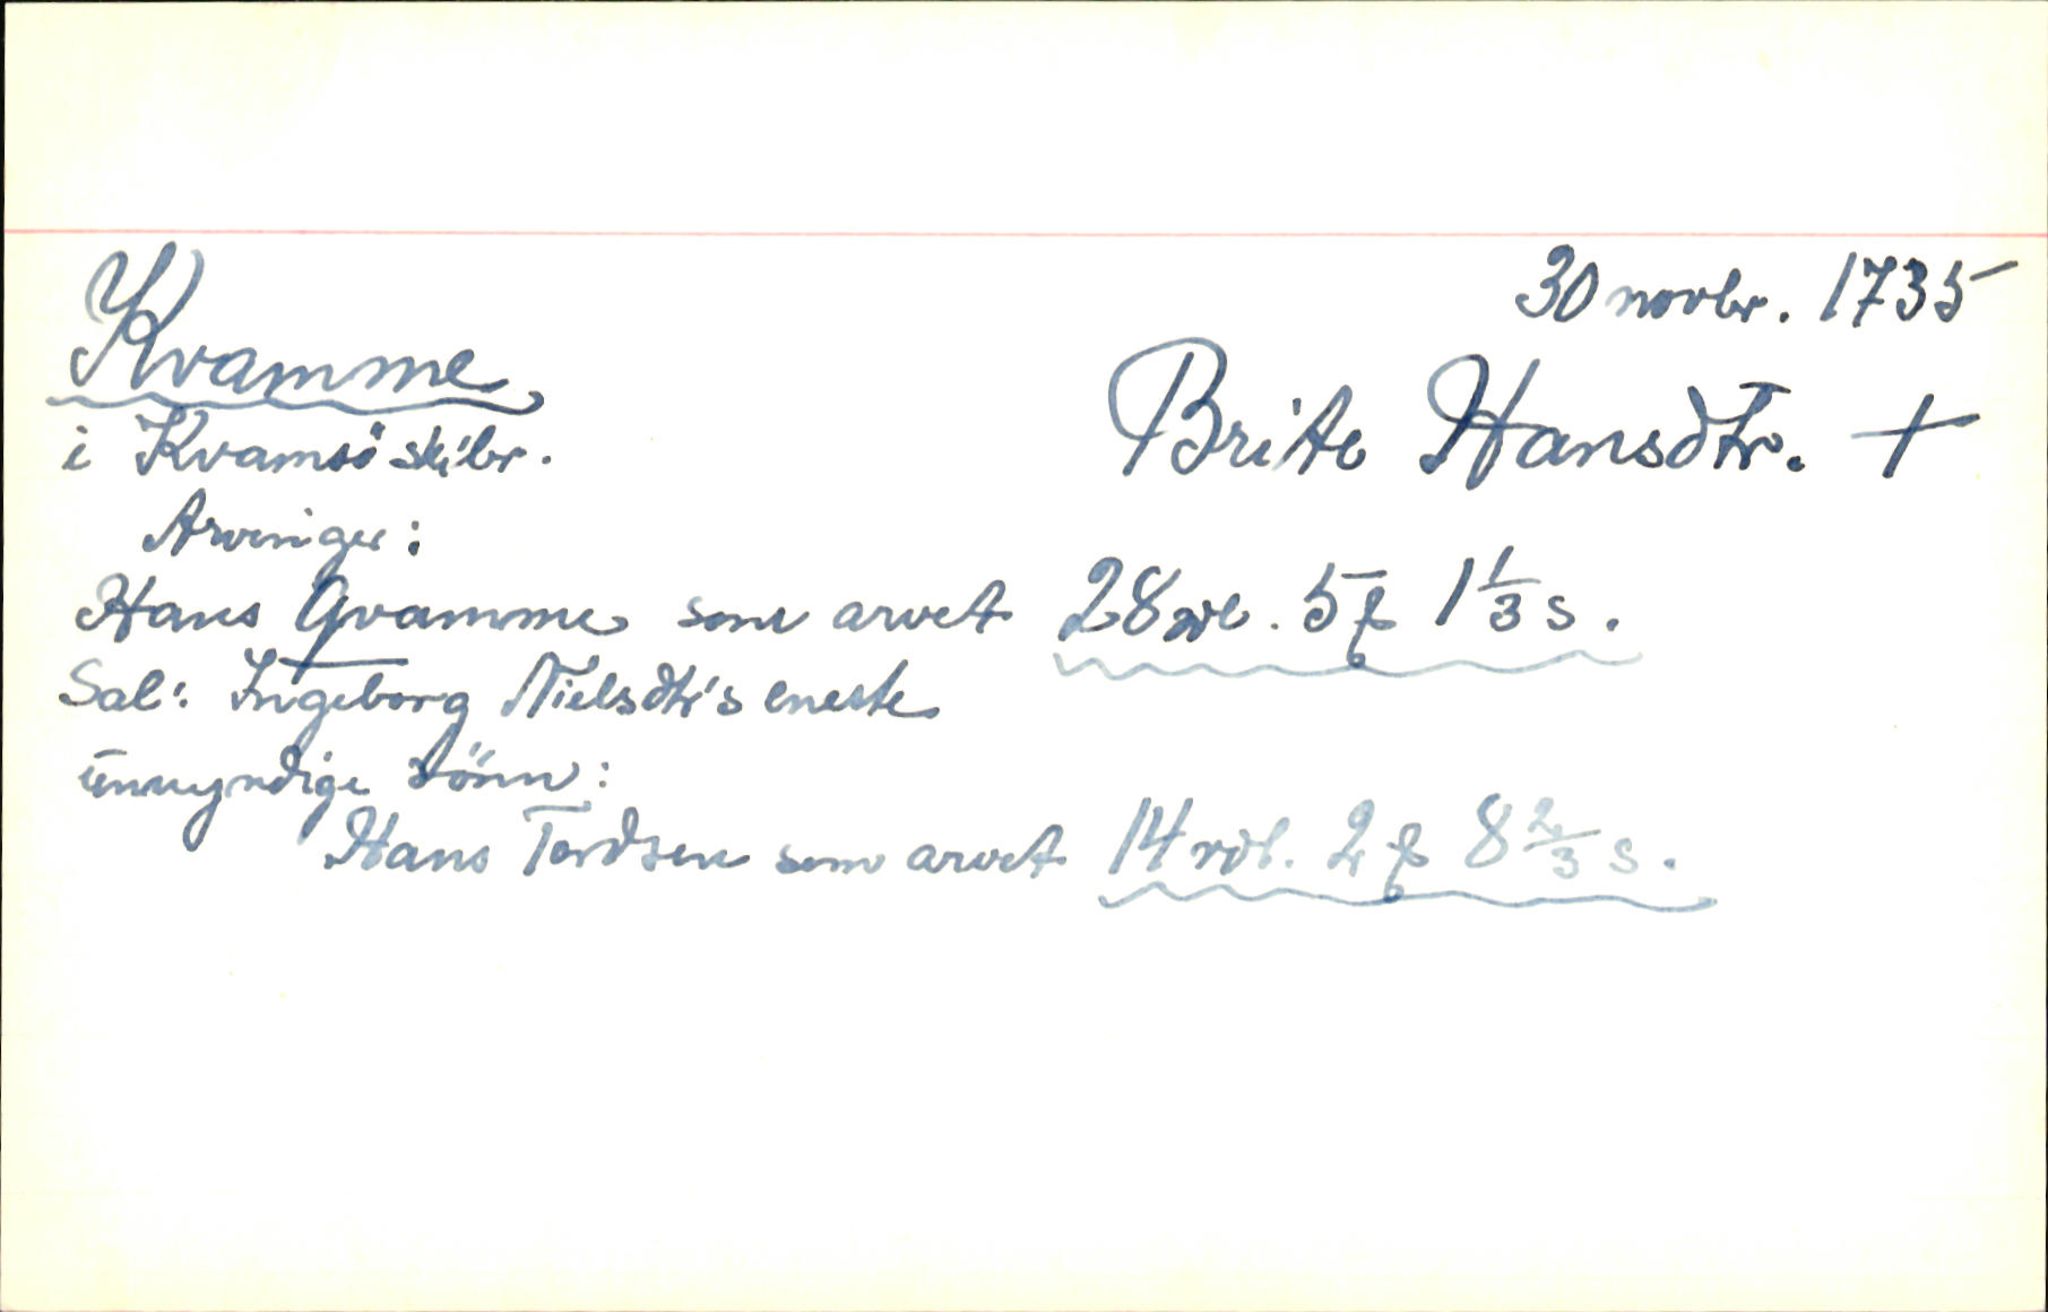 30 novbr. 1735
Kvamme
Brite Hansdtr. +
i Kvamsö skibr.
Arvinger:
Hans Qvamme som arvet 28 rdl. 5 ₰ 1 1/3 s.
Sal: Ingeborg Nielsdtr's eneste
umyndige sönn:
Hans Tordsen som arvet 14 rdl. 2 ₰ 8 2/3 s.